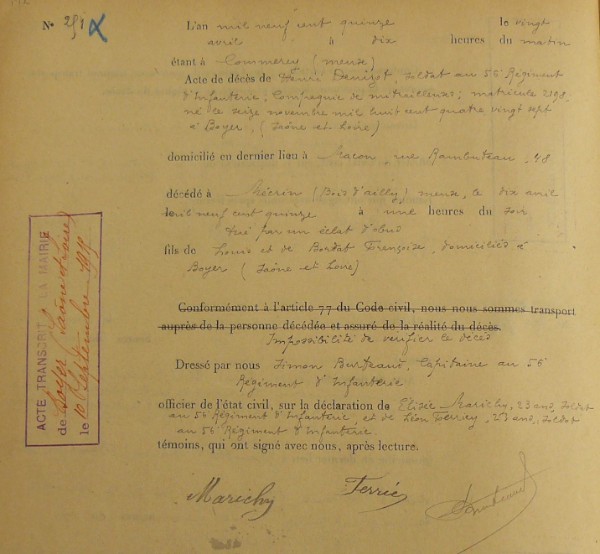 N° 251
L'an mil neuf cent quinze le vingt
avril à dix heures du matin
étant à Commercy (Meuse)
Acte de décès de Henri Denizot, soldat au 56 Régiment
d'Infanterie, Compagnie de mitrailleuses; matricule 2198
né le seize novembre mil huit cent quatre vingt sept
à Boyer, (Saône et Loire)
domicilié en dernier lieu à Macon, rue Rambuteau, 48
décédé à Mécrin (Bois d'ailly) Meuse, le dix avril
mil neuf cent quinze à une heures du soir
tué par un éclat d'obus
fils de Louis et de Bordat Françoise, domiciliés à
Boyer (Saône et Loire)
Conformément à l'article 77 du Code civil, nous nous sommes transport
auprès de la personne décédée et assuré de la réalité du décès.
Impossibilité de vérifier le décès
Dressé par nous Simon Capitaine au 56
Régiment d'Infanterie
officier de l'état civil, sur la déclaration de Elisée Marichy, 23 ans, soldat
au 56 Régiment d'Infanterie, et de Léon 23 ans, soldat
au 56 Régiment d'Infanterie
témoins, qui ont signé avec nous, après lecture.
Marichy Ferrié
ACTE TRANSCRIT À LA MAIRIE
de Boyer Saône et Loire
le 10 Septembre 1915